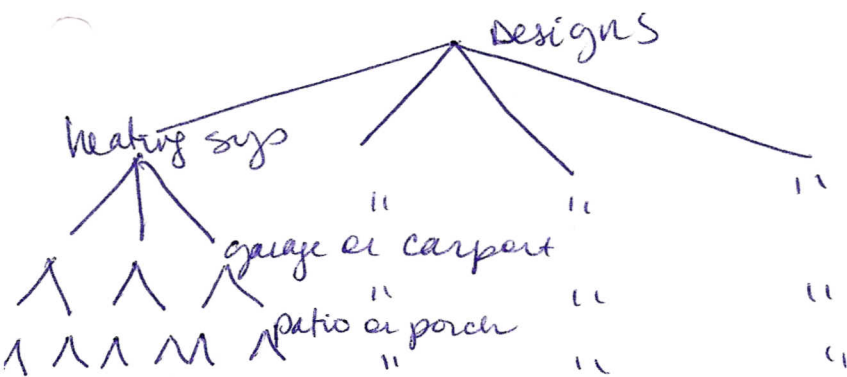 Designs
heating sys
" " "
garage or carport
" " "
patio or porch
" " "